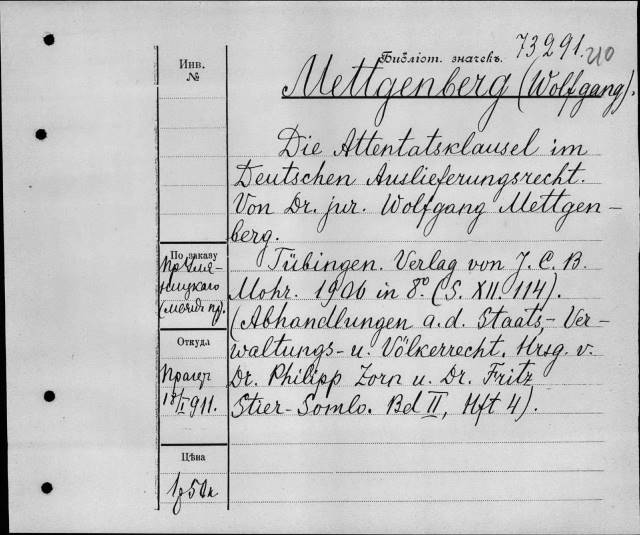 73291.
Библіот. значекъ.
Инв.
№
Mettgenberg (Wolfgang).
Die Attentatsklausel im
Deutschen Auslieferungsrecht.
Von Dr. jur. Wolfgang Mettgen-
berg.
Tübingen. Verlag von J. C. B.
Mohr. 1906 in 8° (S. XII. 114).
(Abhandlungen a. d. Staats,- Ver-
waltungs- u. Völkerrecht. Hrsg. v.
Dr. Philipp Zorn u. Dr. Fritz
Stier-Somlo. Bd II, Hft 4).
По заказу
Откуда
Прагер
1911.
Цѣна
1р 50к